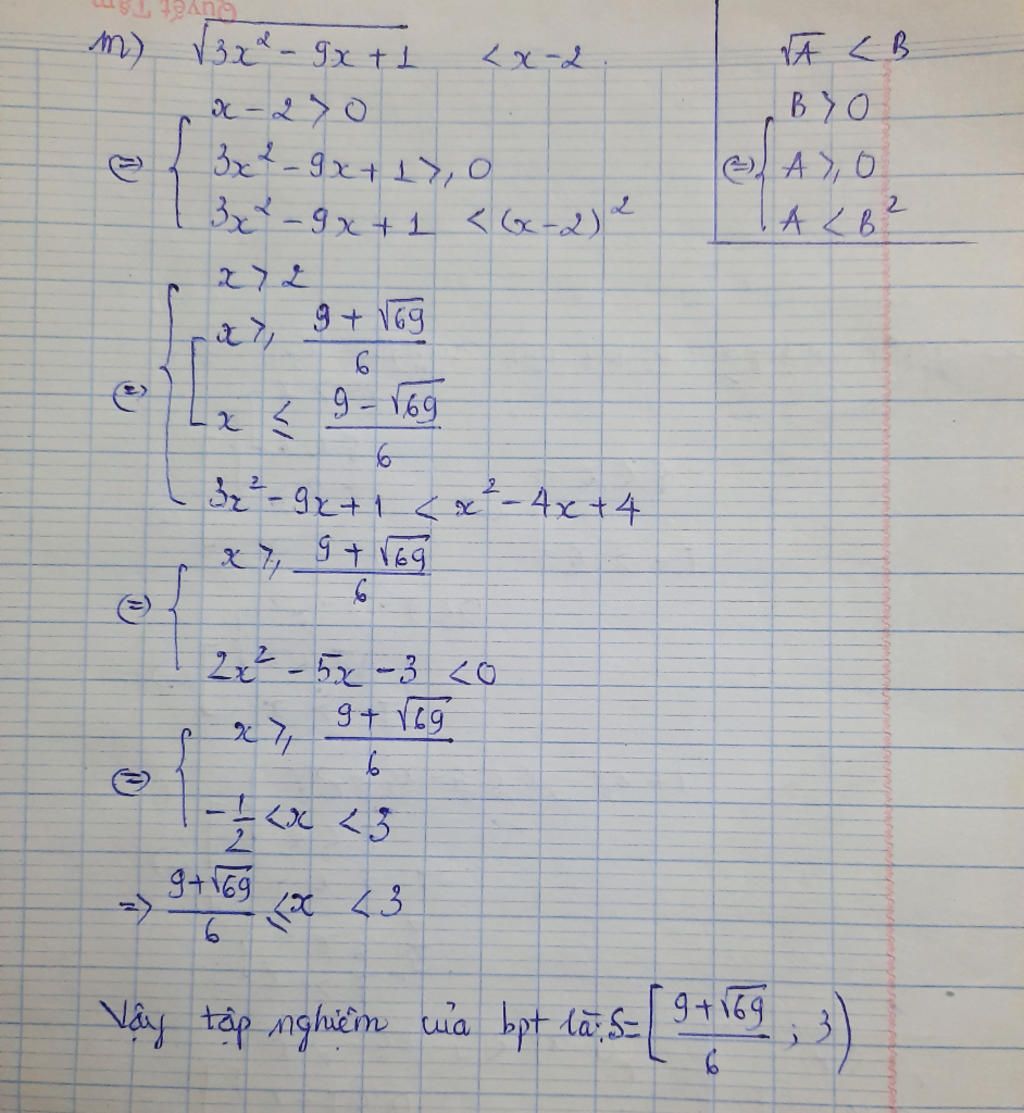 Quyết Tâm
m) √(3x² - 9x + 1) < x - 2.
(=) { x - 2 > 0
3x² - 9x + 1 ≥ 0
3x² - 9x + 1 < (x - 2)²
√A < B
(=) { B > 0
A ≥ 0
A < B²
(=) { x > 2
[ x ≥ (9 + √69)/6
x ≤ (9 - √69)/6
3x² - 9x + 1 < x² - 4x + 4
(=) { x ≥ (9 + √69)/6
2x² - 5x - 3 < 0
(=) { x ≥ (9 + √69)/6
-1/2 < x < 3
=> (9 + √69)/6 ≤ x < 3
Vậy tập nghiệm của bpt là: S = [(9 + √69)/6 ; 3)